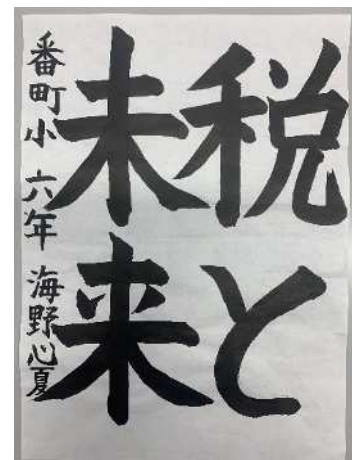 税と
未来
番町小 六年 海野心夏